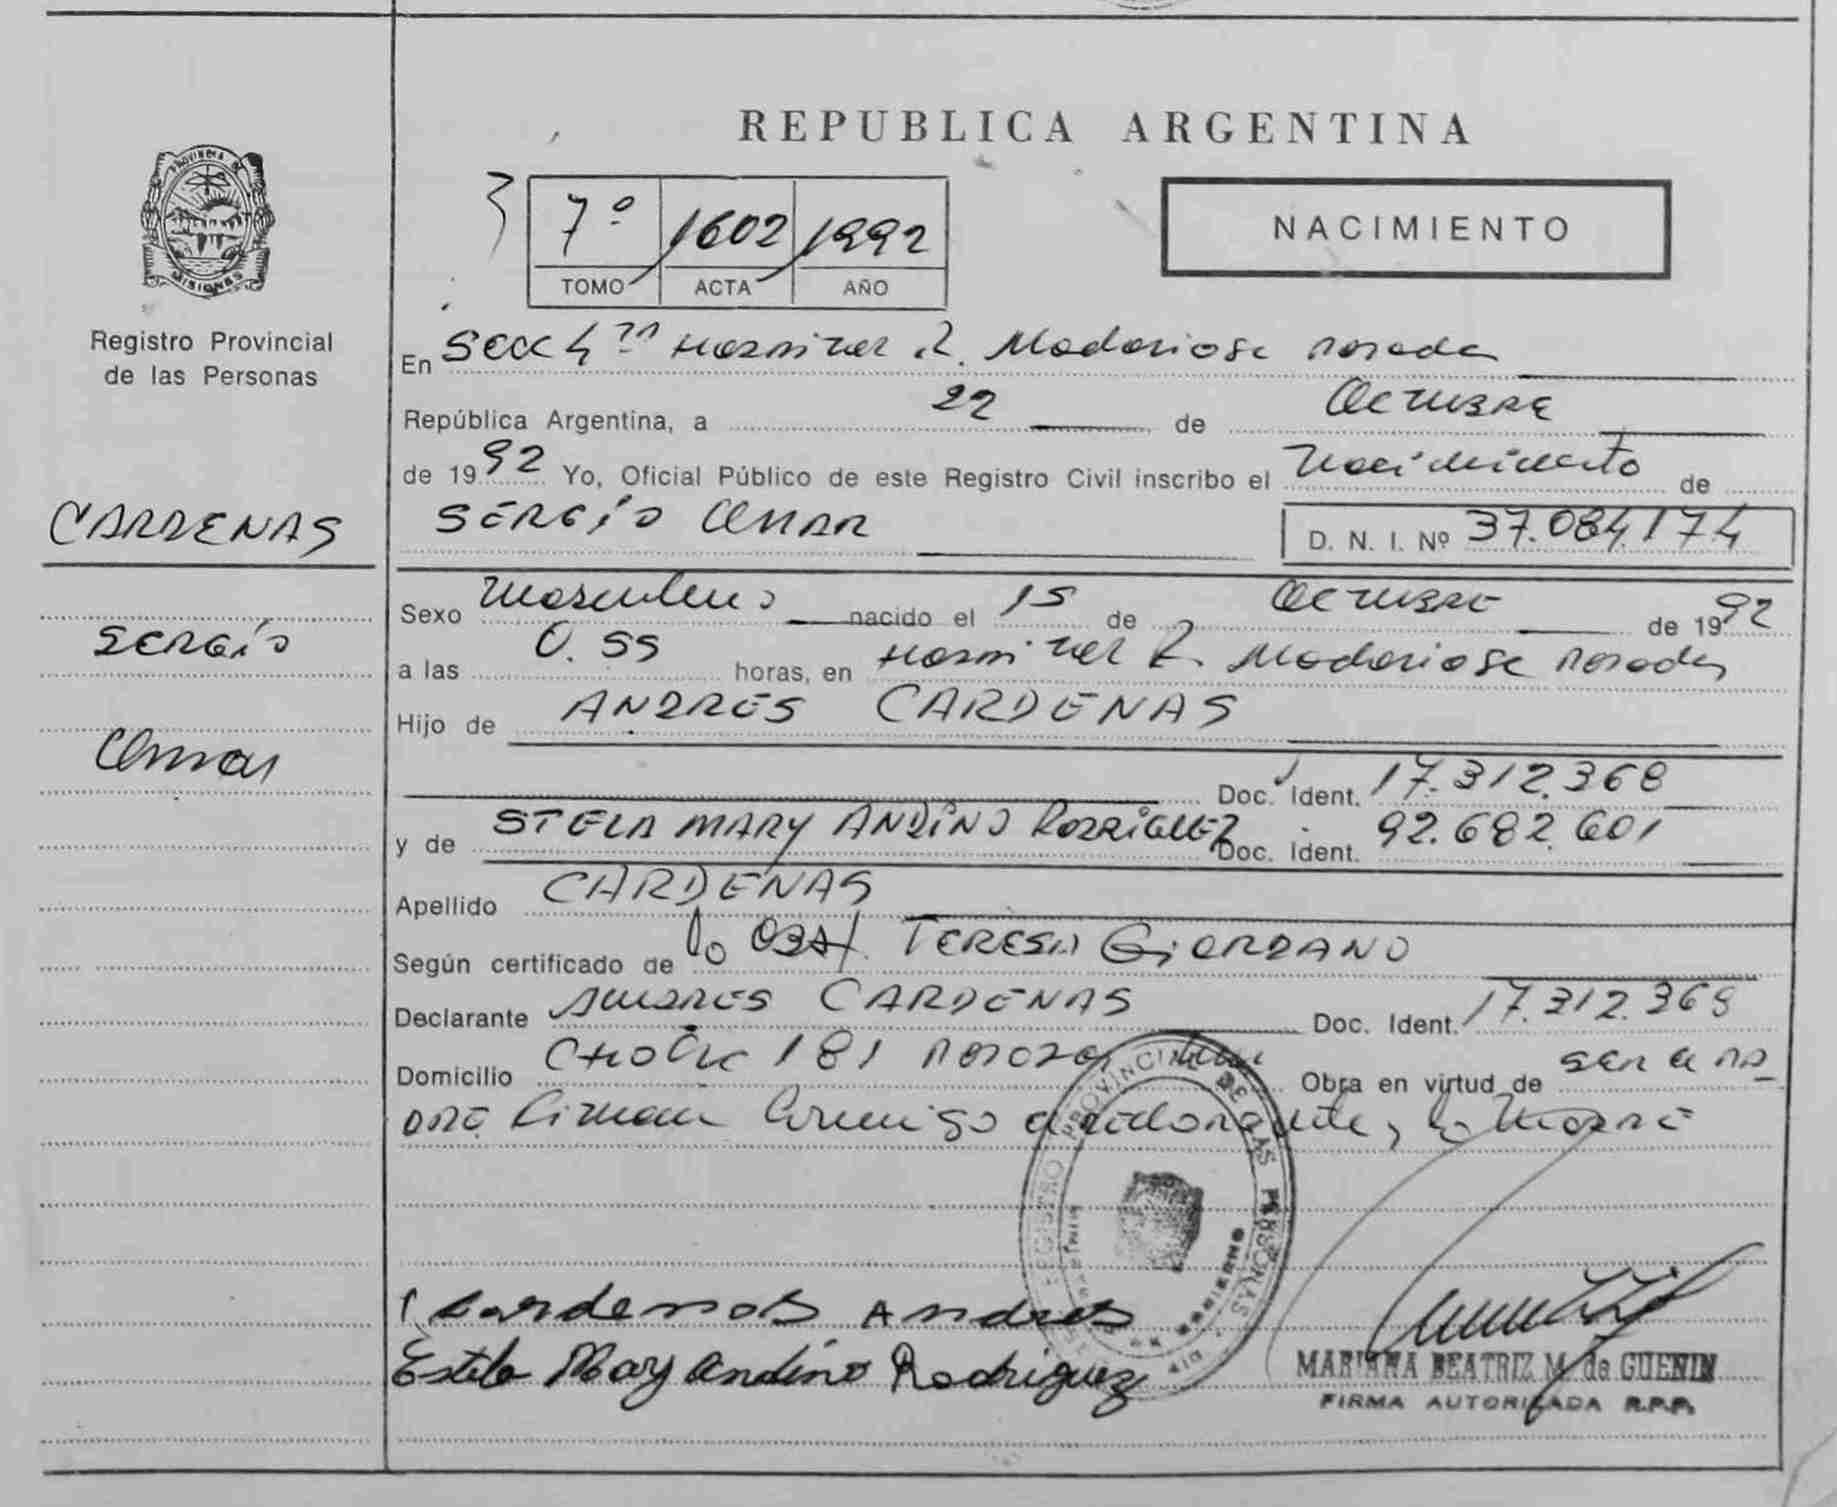 REPUBLICA ARGENTINA
PROVINCIA DE MISIONES
Registro Provincial
de las Personas
7º 1602 1992
TOMO ACTA AÑO
NACIMIENTO
CARDENAS
Sergio
Omar
En Secc 4ta Hospital R. Madariaga Posadas
República Argentina, a 22 de Octubre
de 1992 Yo, Oficial Público de este Registro Civil inscribo el Nacimiento de
SERGIO OMAR D. N. I. Nº 37.084.174
Sexo Masculino nacido el 15 de Octubre de 1992
a las 0.55 horas, en Hospital R. Madariaga Posadas
Hijo de ANDRES CARDENAS
Doc. Ident. 17.312.368
y de STELA MARY ANDINO RODRIGUEZ Doc. Ident. 92.682.601
Apellido CARDENAS
Según certificado de la Obst. TERESA GIORDANO
Declarante ANDRES CARDENAS Doc. Ident. 17.312.368
Domicilio 181 Obra en virtud de ser el pa
dre Firman Conmigo el declarante, la Madre
REGISTRO PROVINCIAL DE LAS PERSONAS
Cardenas Andres
Estela Mary Andino Rodriguez
MARIANA BEATRIZ M. de GUENIN
FIRMA AUTORIZADA R.P.P.